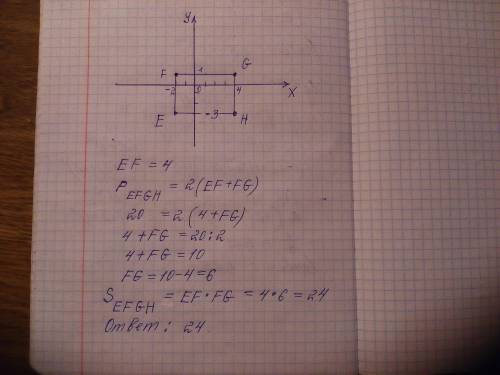 y
F 1 G
-2 0 4 X
E -3 H
EF = 4
P_EFGH = 2(EF+FG)
20 = 2(4+FG)
4+FG = 20:2
4+FG = 10
FG = 10-4=6
S_EFGH = EF·FG = 4·6 = 24
Ответ: 24